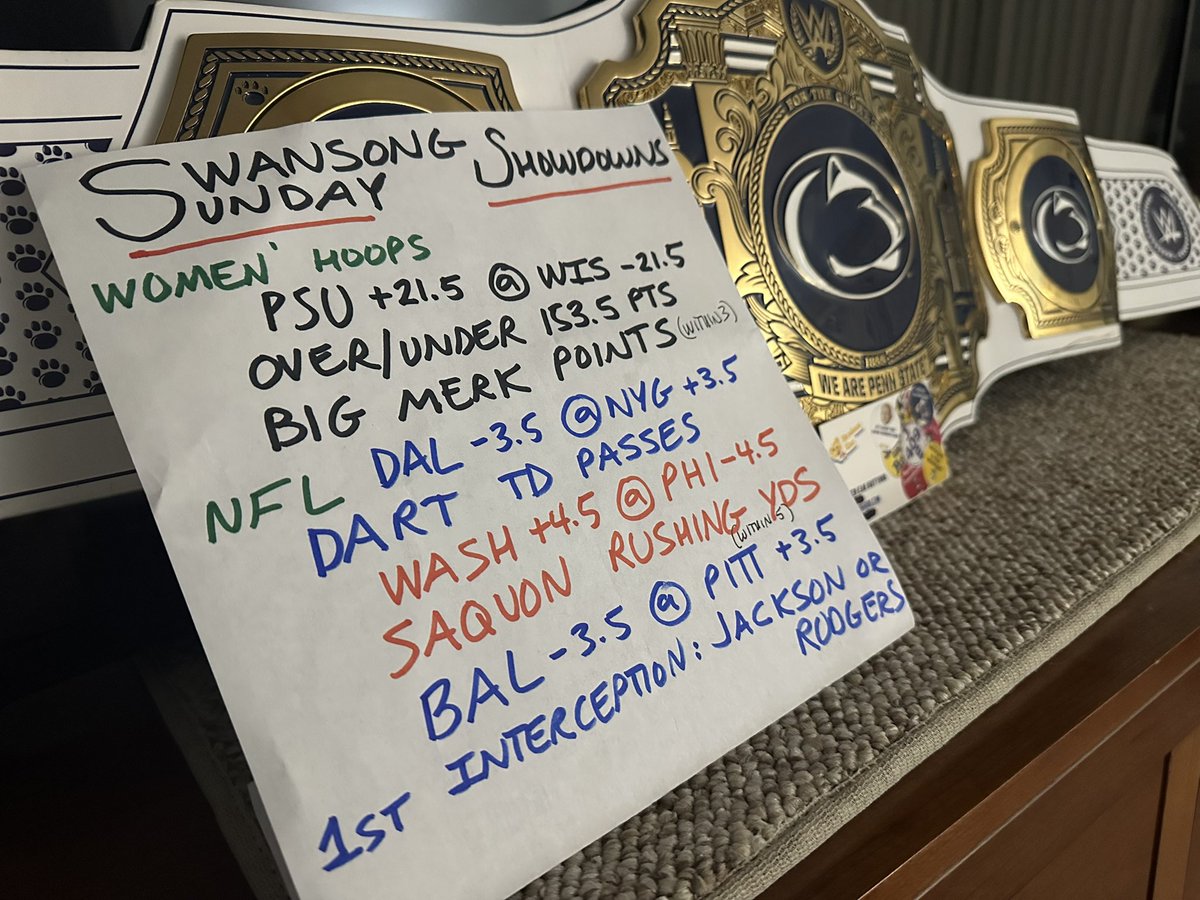 SWANSONG SHOWDOWNS
SUNDAY
WOMEN' HOOPS
PSU +21.5 @ WIS -21.5
OVER/UNDER 153.5 PTS
BIG MERK POINTS (WITHIN 3)
NFL DAL -3.5 @ NYG +3.5
DART TD PASSES
WASH +4.5 @ PHI -4.5
SAQUON RUSHING YDS
(WITHIN 5)
BAL -3.5 @ PITT +3.5
1ST INTERCEPTION: JACKSON OR
RODGERS
W
FOR THE GLORY
WE ARE PENN STATE
W